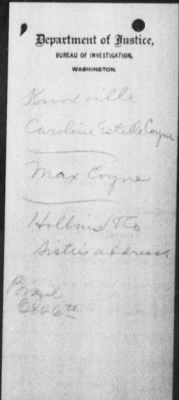 Department of Justice,
BUREAU OF INVESTIGATION,
WASHINGTON.
Knoxville
Caroline Estelle Coyne
Max Coyne
Hollins
Sister's address
Brazil
Oct 6th